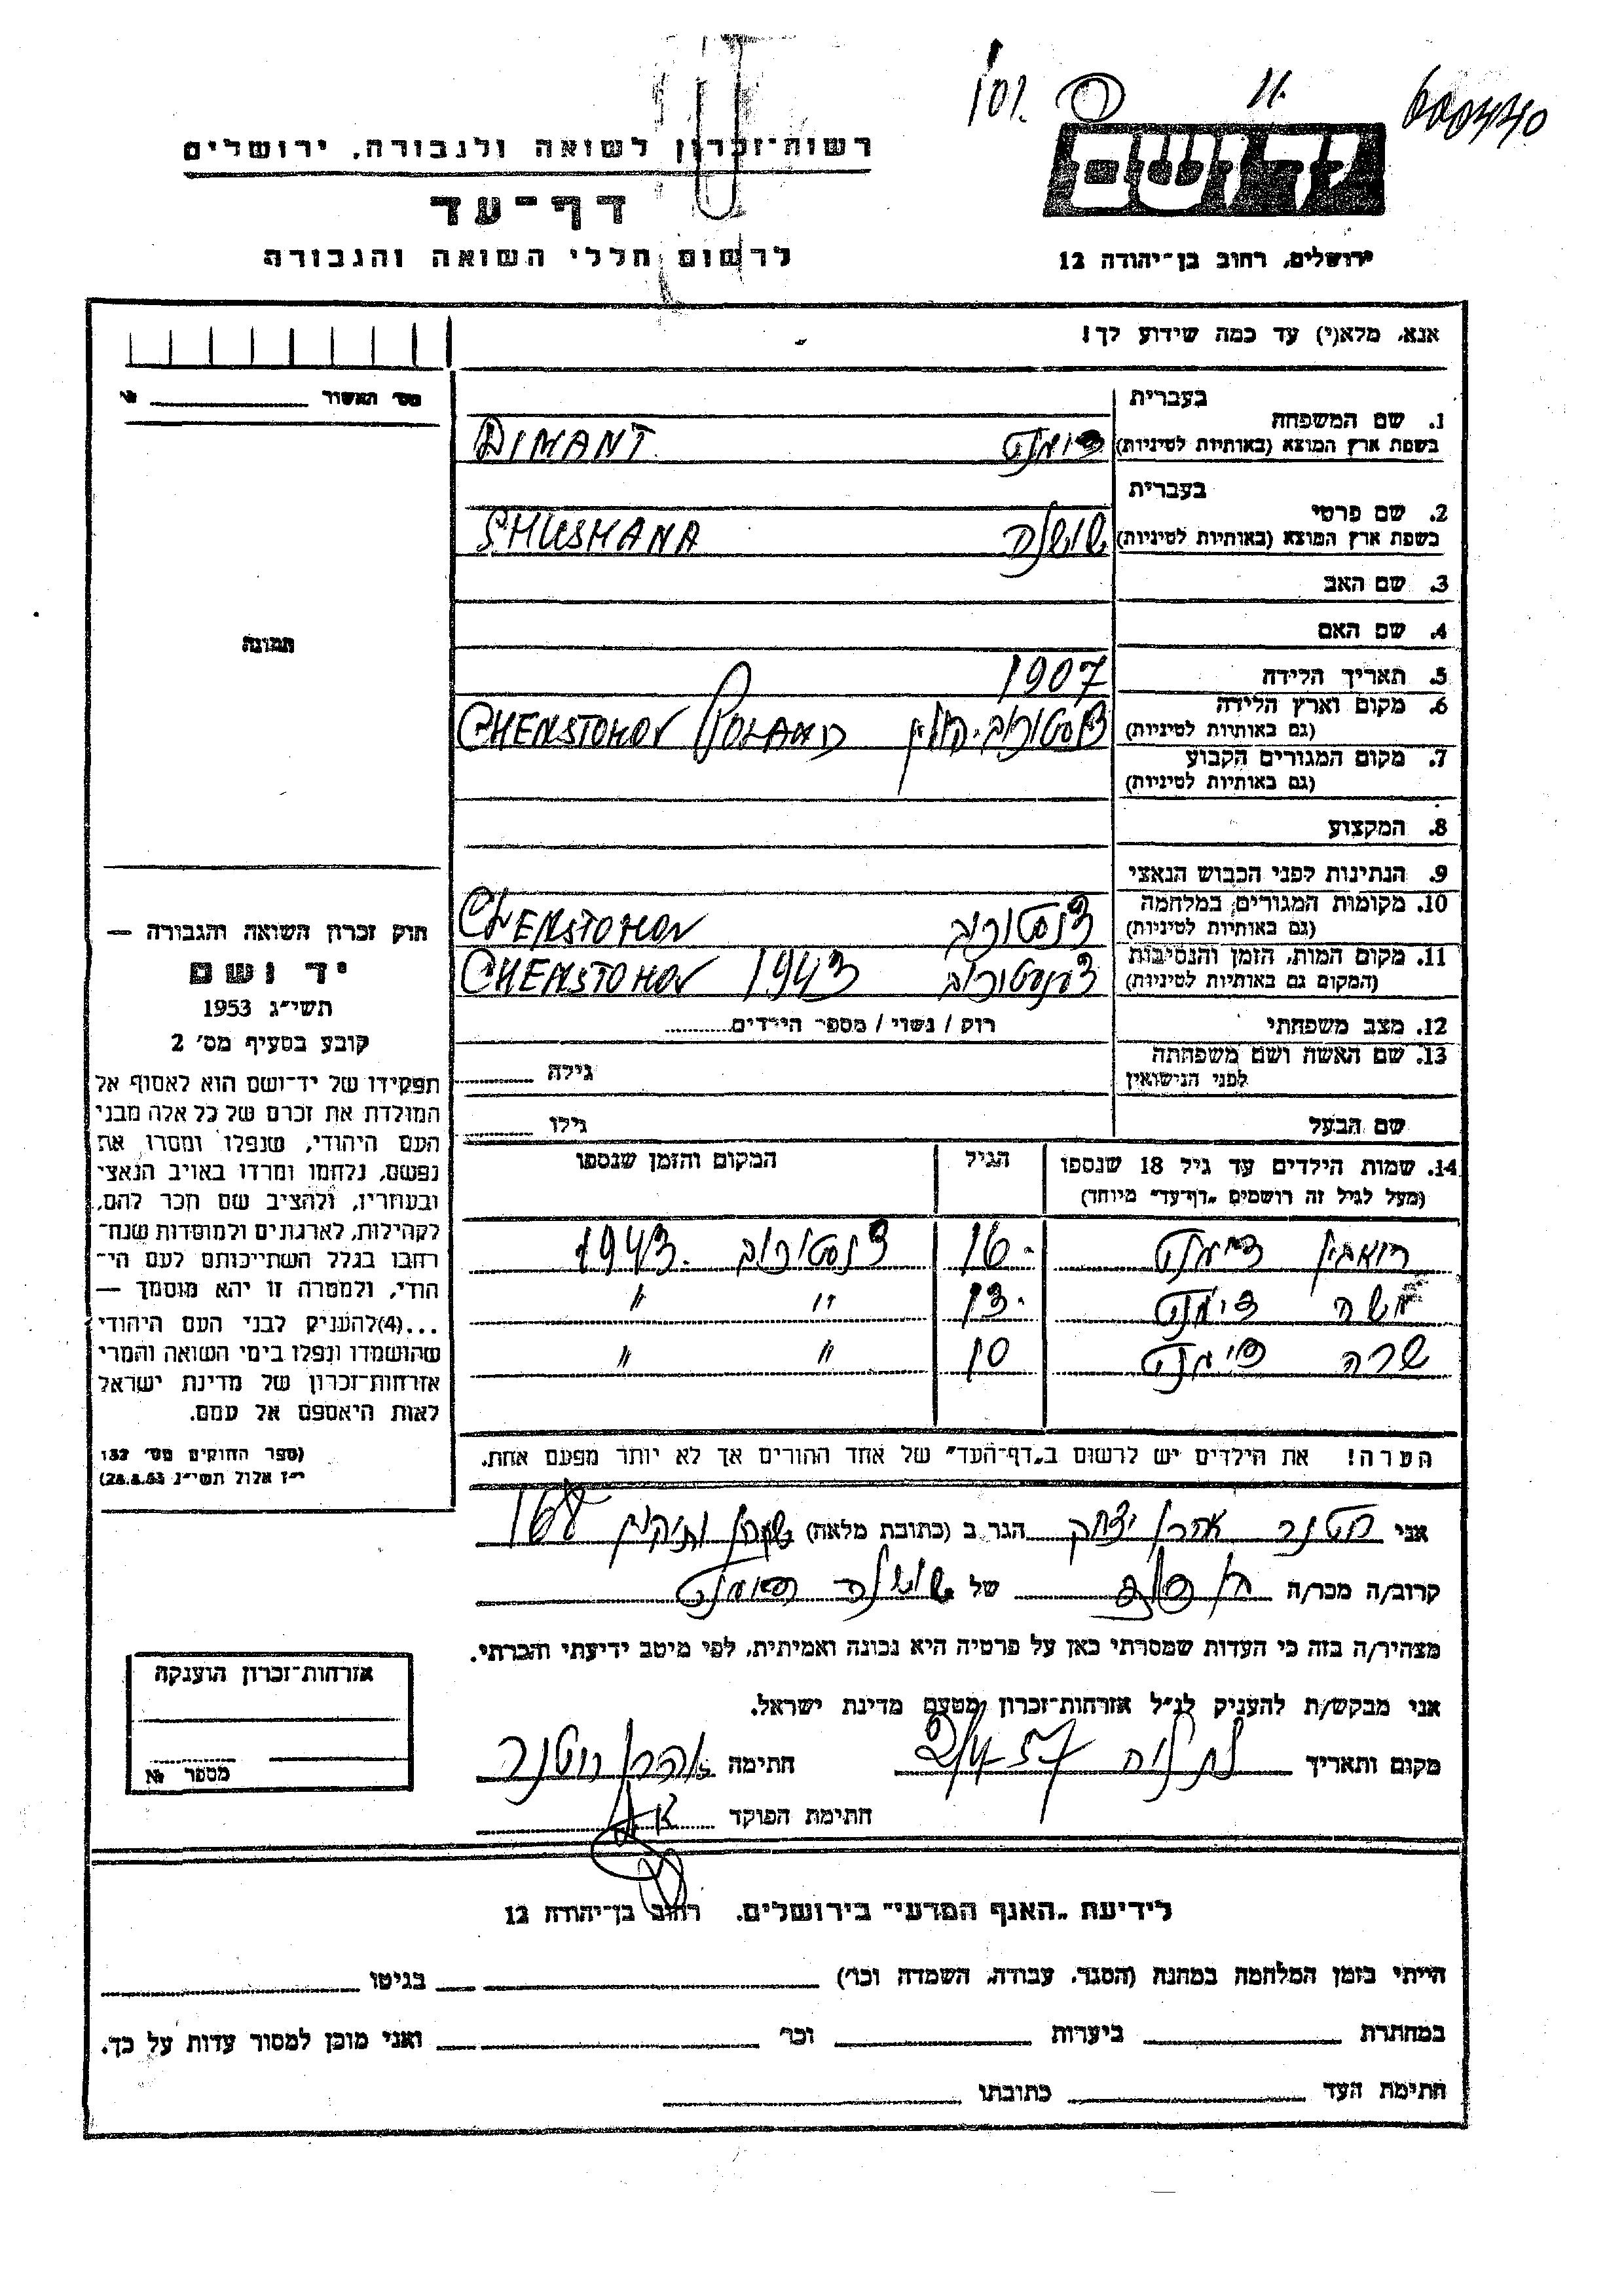 יוס.
רשות־זכרון לשואה ולגבורה, ירושלים
דף־עד
לרשום חללי השואה והגבורה
יד ושם
ירושלים, רחוב בן־יהודה 12
אנא, מלא(י) עד כמה שידוע לך!
מס׳ האשור №
1. שם המשפחה בעברית
בשפת ארץ המוצא (באותיות לטיניות) דימנט DIMANT
2. שם פרטי בעברית
בשפת ארץ המוצא (באותיות לטיניות) שושנה SHUSHANA
3. שם האב
4. שם האם
תמונה
5. תאריך הלידה 1907
6. מקום וארץ הלידה
(גם באותיות לטיניות) צ'נסטוכוב. פולין CHENSTOHOV POLAND
7. מקום המגורים הקבוע
(גם באותיות לטיניות)
8. המקצוע
9. הנתינות לפני הכבוש הנאצי
10. מקומות המגורים במלחמה
(גם באותיות לטיניות) צ'נסטוכוב CHENSTOHOV
11. מקום המות, הזמן והנסיבות
(המקום גם באותיות לטיניות) צ'נסטוכוב 1943 CHENSTOHOV
12. מצב משפחתי רוק / נשוי / מספר הילדים
13. שם האשה ושם משפחתה
לפני הנישואין גילה
שם הבעל גילו
14. שמות הילדים עד גיל 18 שנספו הגיל המקום והזמן שנספו
(מעל לגיל זה רושמים „דף־עד” מיוחד)
ראובן דימנט 16 צ'נסטוכוב 1943
משה דימנט 13 " "
שרה דימנט 10 " "
הערה! את הילדים יש לרשום ב„דף־העד” של אחד ההורים אך לא יותר מפעם אחת.
חוק זכרון השואה והגבורה —
יד ושם
תשי״ג 1953
קובע בסעיף מס׳ 2
תפקידו של יד־ושם הוא לאסוף אל
המולדת את זכרם של כל אלה מבני
העם היהודי, שנפלו ומסרו את
נפשם, נלחמו ומרדו באויב הנאצי
ובעוזריו, ולהציב שם וזכר להם,
לקהילות, לארגונים ולמוסדות שנח־
רבו בגלל השתייכותם לעם הי־
הודי, ולמטרה זו יהא מוסמך —
...(4)להעניק לבני העם היהודי
שהושמדו ונפלו בימי השואה והמרי
אזרחות־זכרון של מדינת ישראל
לאות היאספם אל עמם.
(ספר החוקים מס׳ 132
י״ז אלול תשי״ג 28.8.53)
אני אהרן יצחק הגר ב (כתובת מלאה) שכון ותיקים
קרוב/ה מכר/ה בן דוד של שושנה דימנט
מצהיר/ה בזה כי העדות שמסרתי כאן על פרטיה היא נכונה ואמיתית, לפי מיטב ידיעתי והכרתי.
אני מבקש/ת להעניק לנ״ל אזרחות־זכרון מטעם מדינת ישראל.
מקום ותאריך 2/4 57 חתימה אהרן
חתימת הפוקד
אזרחות־זכרון הוענקה
מספר №
לידיעת „האגף המדעי” בירושלים. רחוב בן־יהודה 12
הייתי בזמן המלחמה במחנה (הסגר, עבודה, השמדה וכו׳) בגיטו
במחתרת ביערות וכו׳ ואני מוכן למסור עדות על כך.
חתימת העד כתובתו